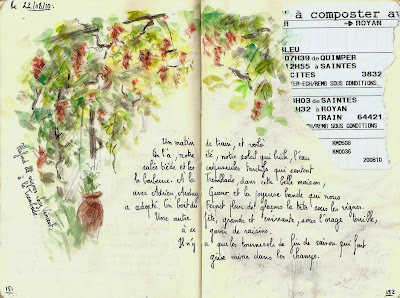 le 22/08/10.
à composter av
ROYAN
BLEU
07H39 de QUIMPER
12H55 à SAINTES
CITES 3832
ECH/REMB SOUS CONDITIONS
H03 de SAINTES
H32 à ROYAN
TRAIN 64421
ECH/REMB SOUS CONDITIONS
KM0508
KM0036
200810
Un matin de train, et voilà
On l'a, notre été, notre soleil qui brûle, l'eau
salée tiède et les
la bouberie. A la Tremblade dans cette belle maison,
avec Adrien Audrey Gwenn et la joyeuse bande qui nous
a adopté. On boit du Pinot plein de glaçons la tête sous les vignes.
Une autre fête, grande et enivrante, sous l'orage
à se gaver de raisins.
Il n'y a que les tournesols de fin de saison qui font
grise mine dans les champs.
151
152